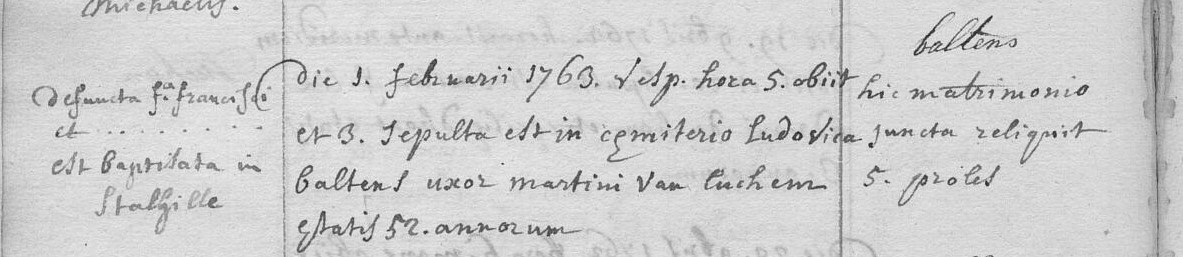 Michaelis.
defuncta f.a francisci
et . . . . . . . . .
est baptisata in
Stalhille
die 1. februarii 1763. Vesp. hora 5. obiit
et 3. Sepulta est in cęmiterio Ludovica
baltens uxor martini Van Luchem
ętatis 52. annorum
baltens
hic matrimonio
Juncta reliquit
5. proles